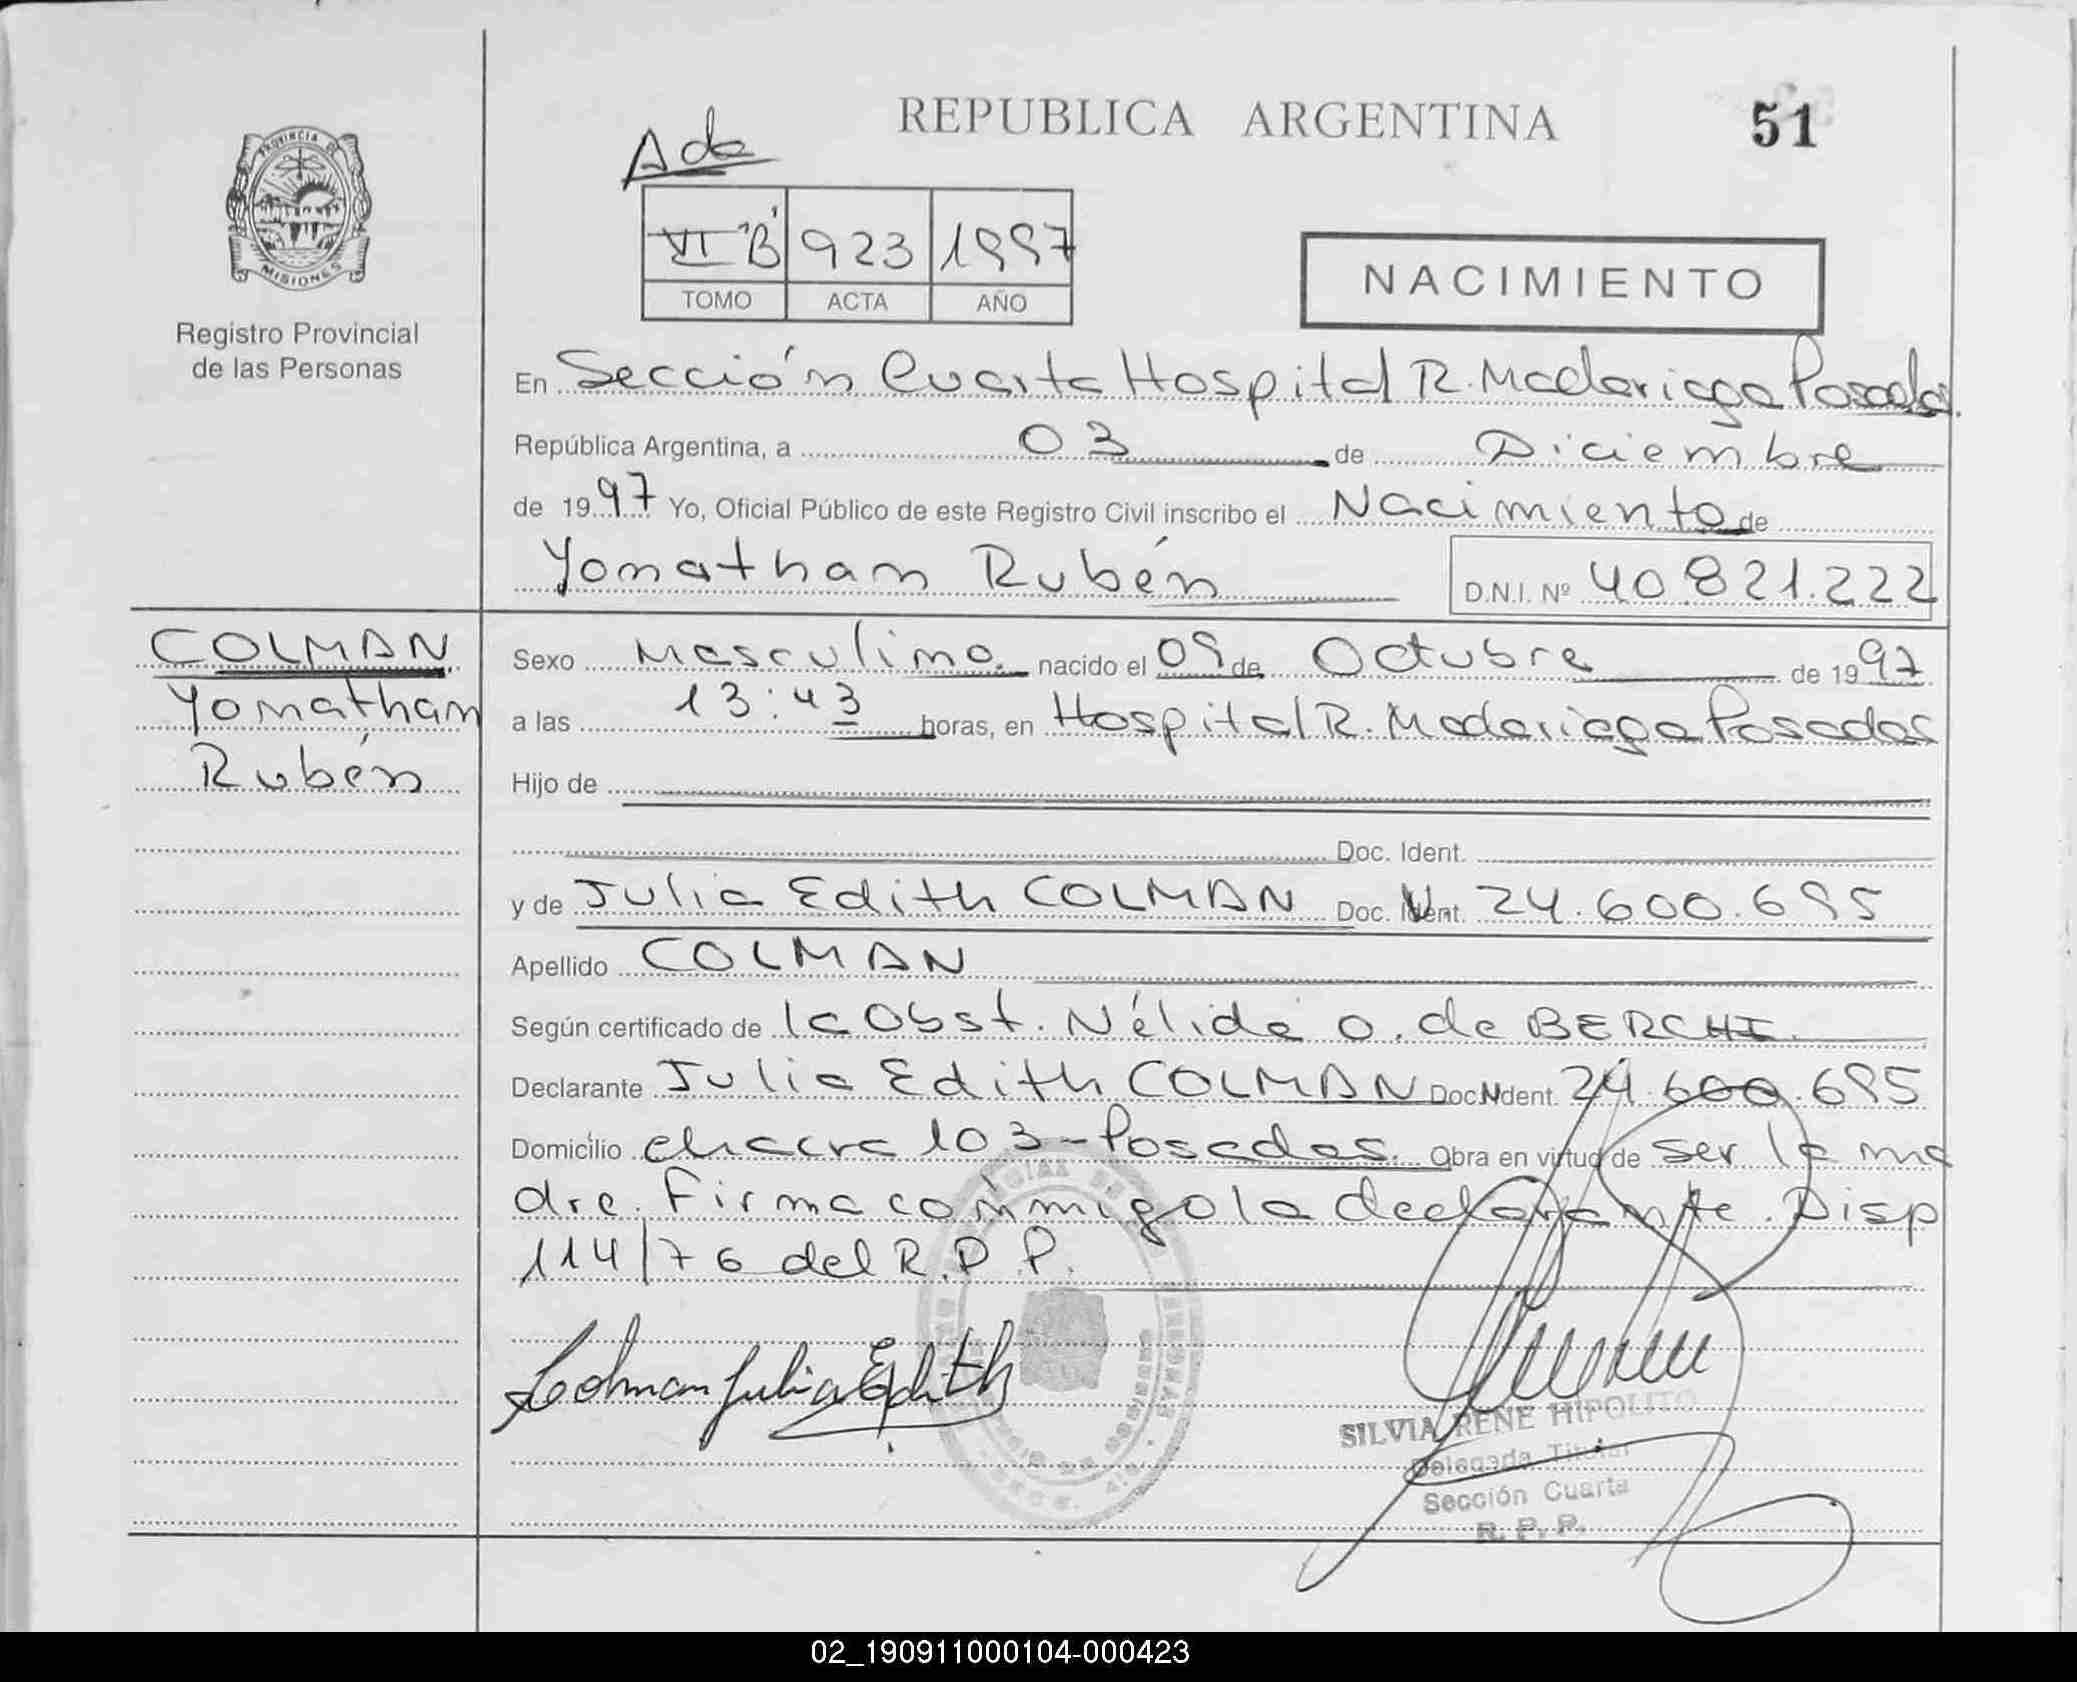 REPUBLICA ARGENTINA
51
PROVINCIA DE
MISIONES
Registro Provincial
de las Personas
Ada
VI "B" 923 1997
TOMO ACTA AÑO
NACIMIENTO
En Sección Cuarta Hospital R. Madariaga Posadas.
República Argentina, a 03 de Diciembre
de 1997 Yo, Oficial Público de este Registro Civil inscribo el Nacimiento de
Yonathan Rubén D.N.I. Nº 40.821.222
COLMAN
Yonathan
Rubén
Sexo Masculino nacido el 09 de Octubre de 1997
a las 13:43 horas, en Hospital R. Madariaga Posadas
Hijo de
Doc. Ident.
y de Julia Edith COLMAN Doc. Ident. 24.600.695
Apellido COLMAN
Según certificado de la Obst. Nélida O. de BERCHI.
Declarante Julia Edith COLMAN Doc. Ident. 24.600.695
Domicilio chacra 103 - Posadas. Obra en virtud de ser la ma
dre. Firma conmigo la declarante. Disp
114/76 del R.P.P.
Colman Julia Edith
SILVIA RENE HIPOLITO
Delegada Titular
Sección Cuarta
R. P. P.
02_190911000104-000423